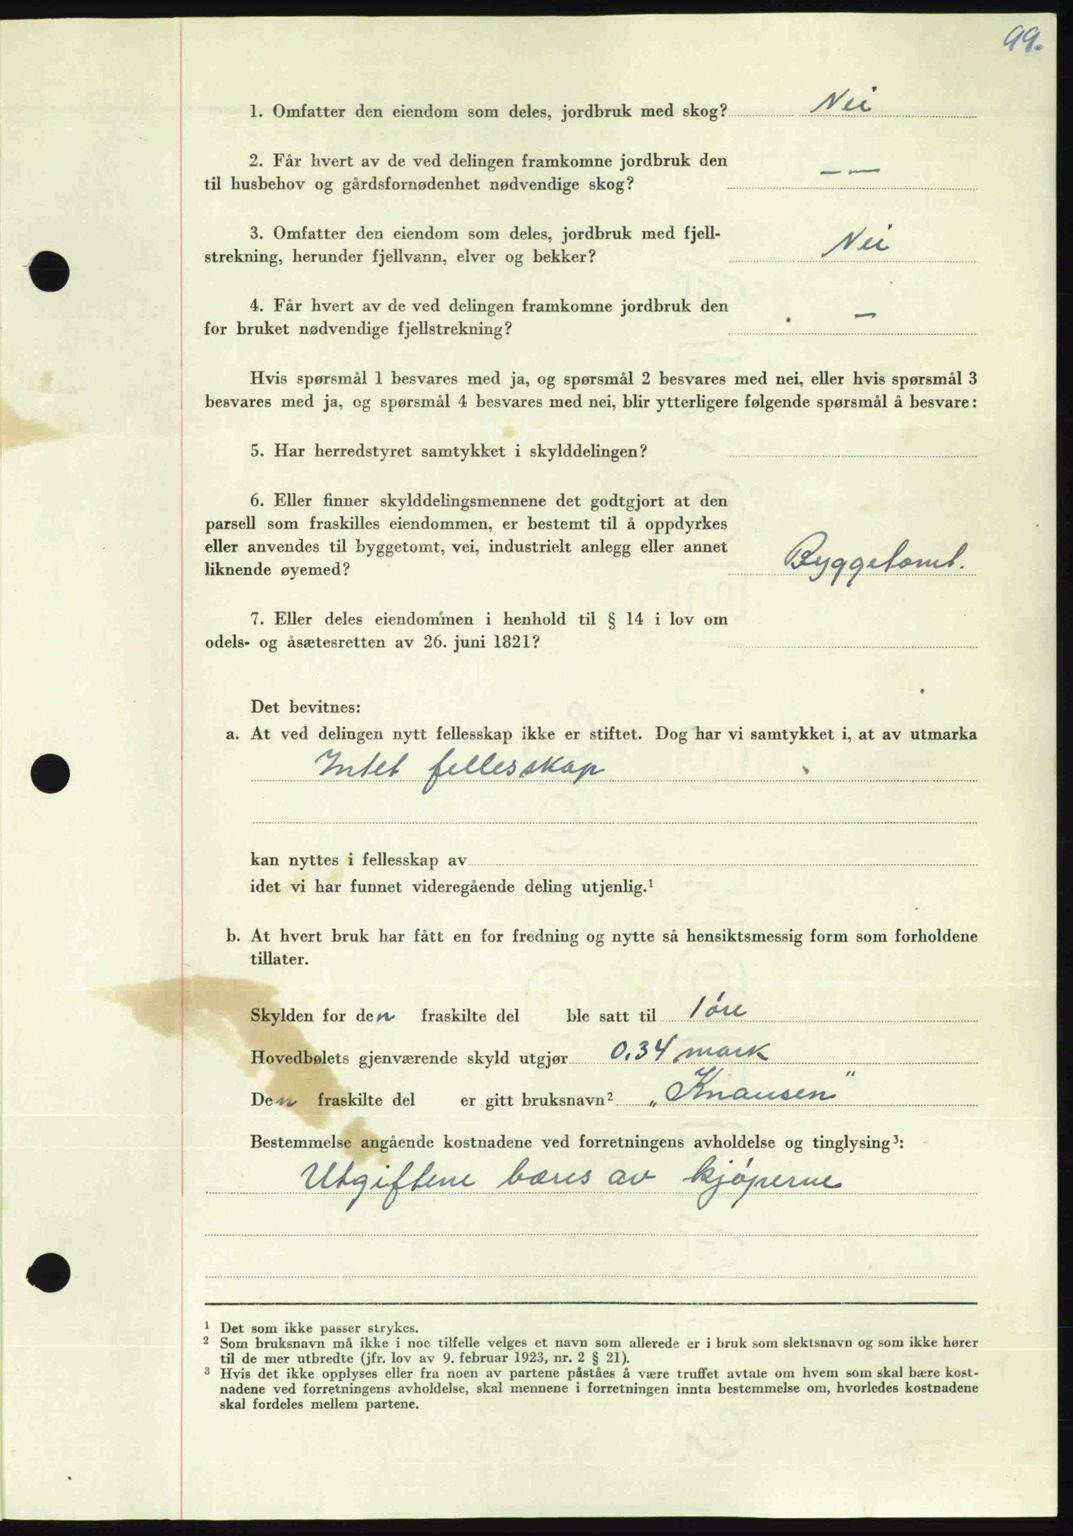 99.
1. Omfatter den eiendom som deles, jordbruk med skog? Nei
2. Får hvert av de ved delingen framkomne jordbruk den
til husbehov og gårdsfornødenhet nødvendige skog? — —
3. Omfatter den eiendom som deles, jordbruk med fjell-
strekning, herunder fjellvann, elver og bekker? Nei
4. Får hvert av de ved delingen framkomne jordbruk den
for bruket nødvendige fjellstrekning? —
Hvis spørsmål 1 besvares med ja, og spørsmål 2 besvares med nei, eller hvis spørsmål 3
besvares med ja, og spørsmål 4 besvares med nei, blir ytterligere følgende spørsmål å besvare:
5. Har herredstyret samtykket i skylddelingen?
6. Eller finner skylddelingsmennene det godtgjort at den
parsell som fraskilles eiendommen, er bestemt til å oppdyrkes
eller anvendes til byggetomt, vei, industrielt anlegg eller annet
liknende øyemed? Byggetomt.
7. Eller deles eiendommen i henhold til § 14 i lov om
odels- og åsætesretten av 26. juni 1821?
Det bevitnes:
a. At ved delingen nytt fellesskap ikke er stiftet. Dog har vi samtykket i, at av utmarka
Intet fellesskap
kan nyttes i fellesskap av
idet vi har funnet videregående deling utjenlig.¹
b. At hvert bruk har fått en for fredning og nytte så hensiktsmessig form som forholdene
tillater.
Skylden for den fraskilte del ble satt til 1 øre
Hovedbølets gjenværende skyld utgjør 0.34 mark
Den fraskilte del er gitt bruksnavn² „Knausen"
Bestemmelse angående kostnadene ved forretningens avholdelse og tinglysing³:
Utgiftene bæres av kjøperne
¹ Det som ikke passer strykes.
² Som bruksnavn må ikke i noe tilfelle velges et navn som allerede er i bruk som slektsnavn og som ikke hører
til de mer utbredte (jfr. lov av 9. februar 1923, nr. 2 § 21).
³ Hvis det ikke opplyses eller fra noen av partene påståes å være truffet avtale om hvem som skal bære kost-
nadene ved forretningens avholdelse, skal mennene i forretningen innta bestemmelse om, hvorledes kostnadene
skal fordeles mellem partene.